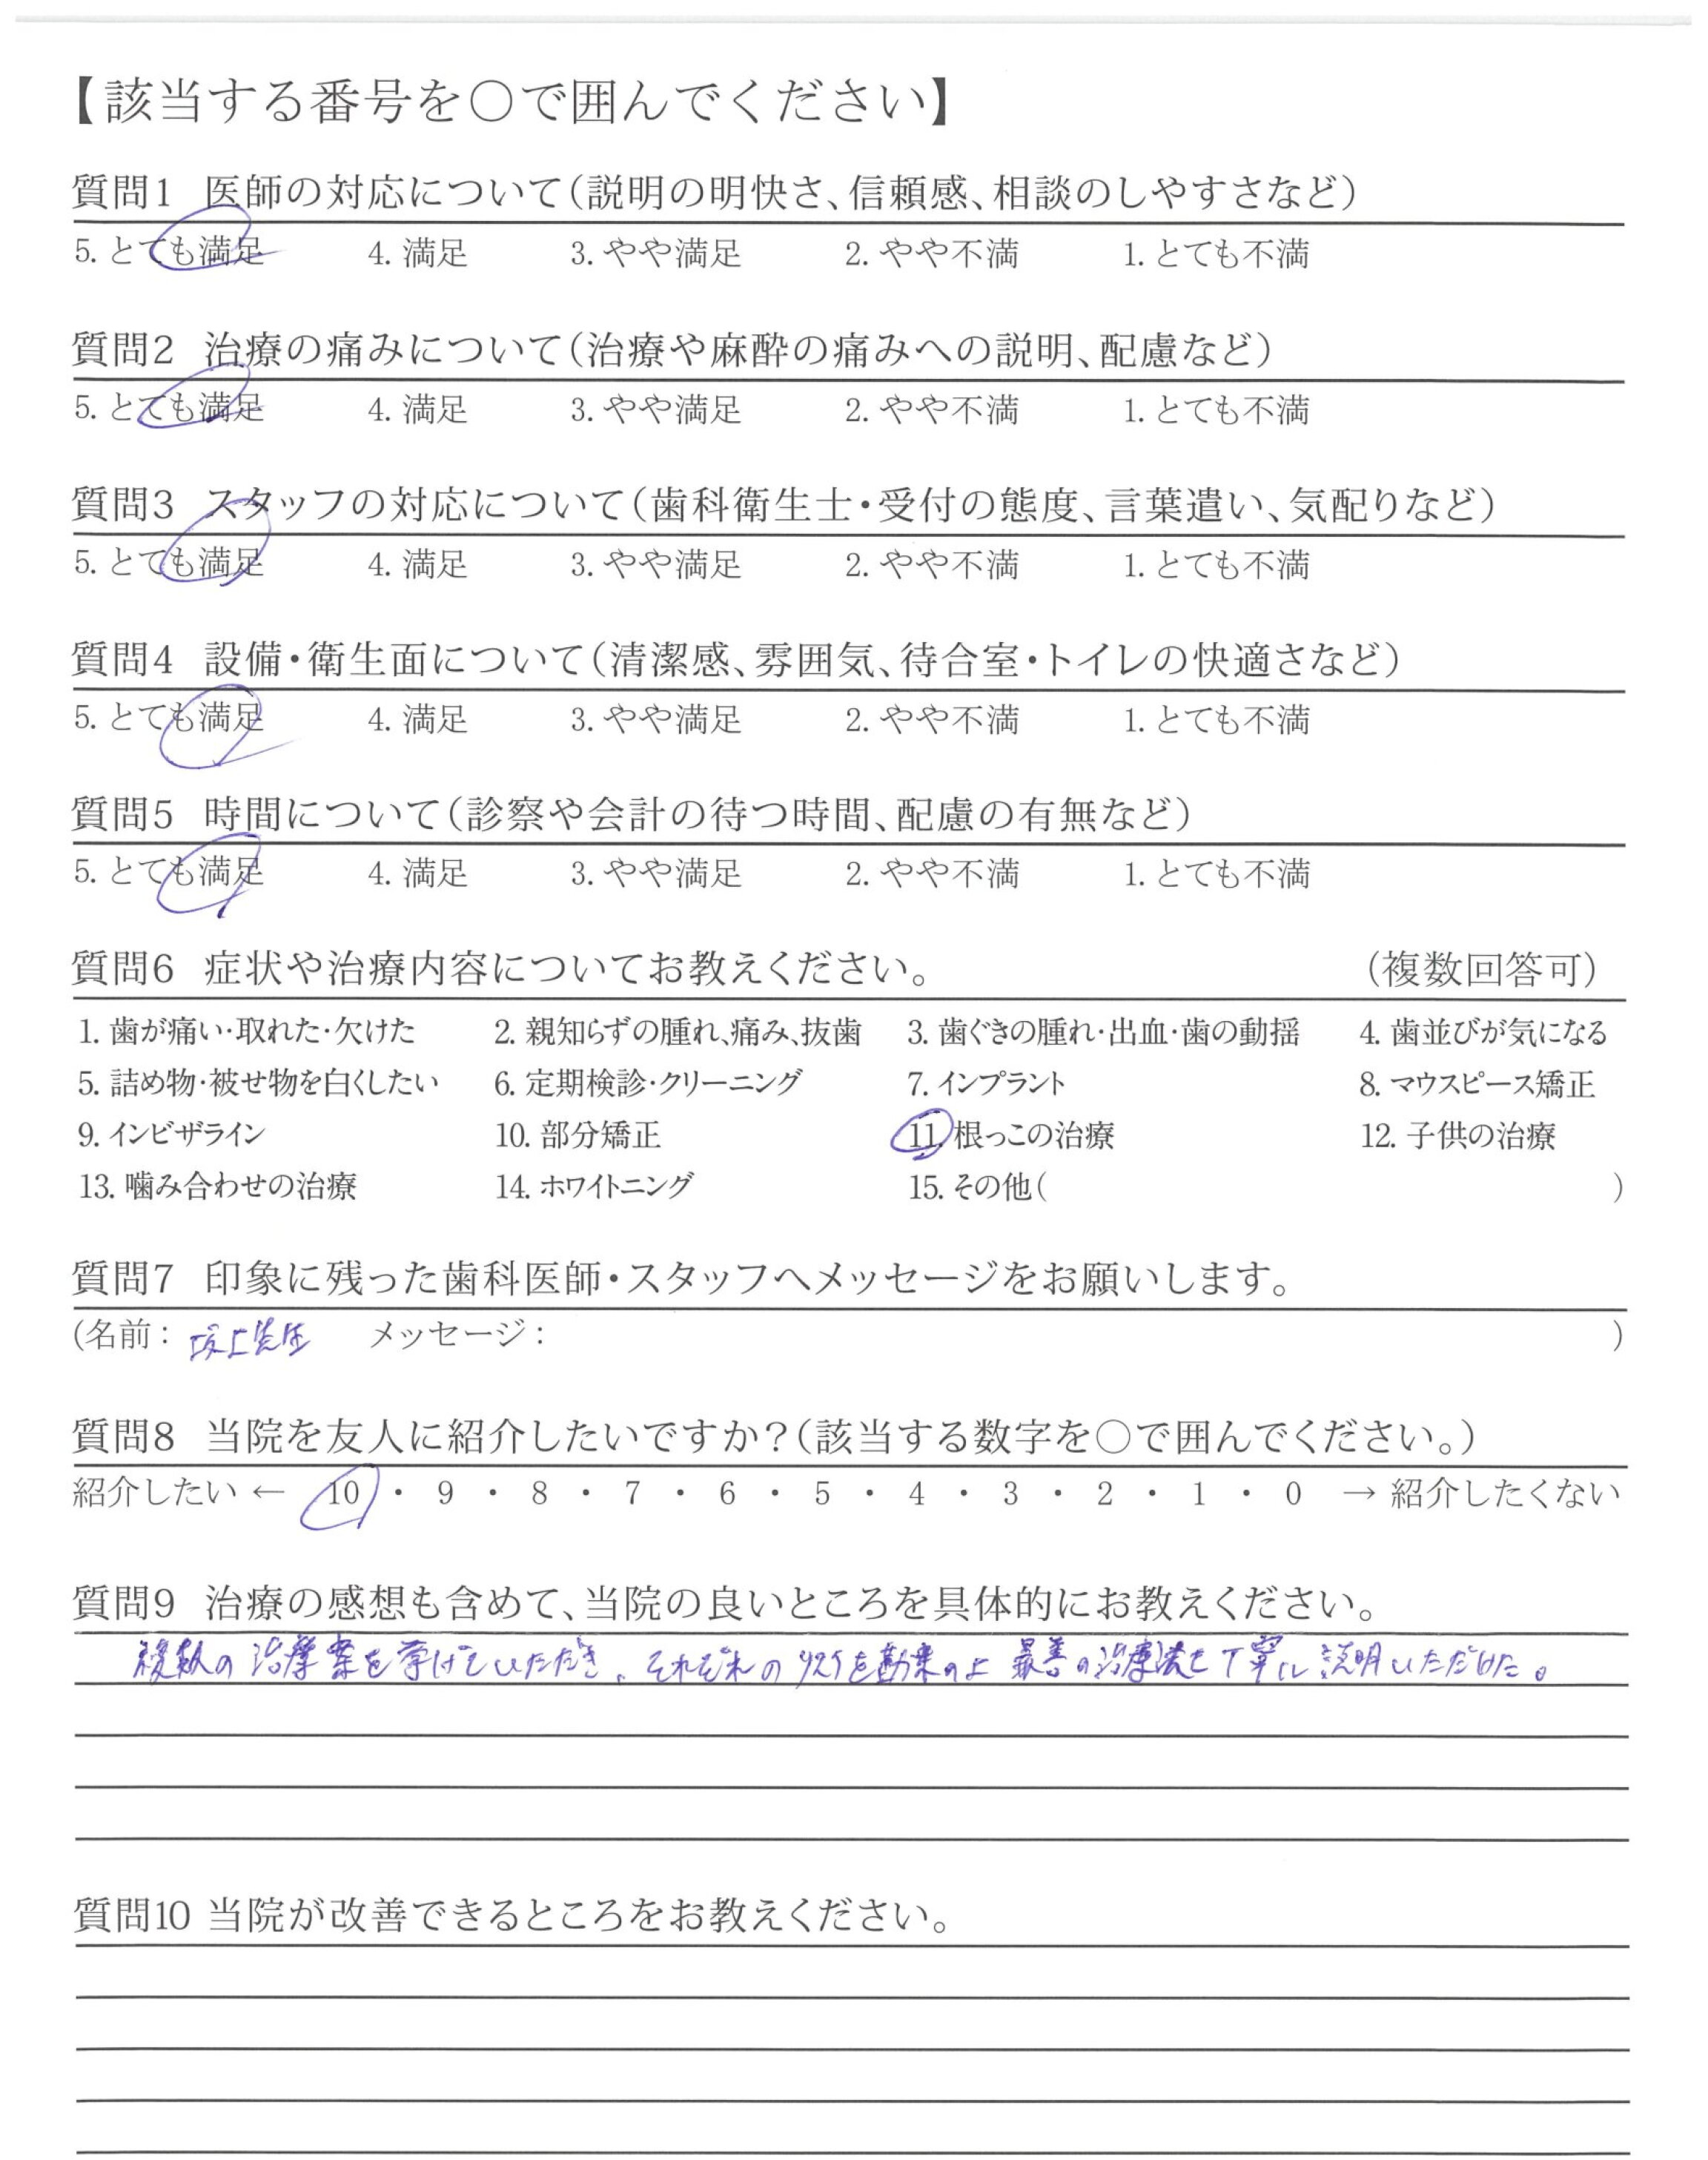 【該当する番号を○で囲んでください】
質問1 医師の対応について(説明の明快さ、信頼感、相談のしやすさなど)
5. とても満足 4. 満足 3. やや満足 2. やや不満 1. とても不満
質問2 治療の痛みについて(治療や麻酔の痛みへの説明、配慮など)
5. とても満足 4. 満足 3. やや満足 2. やや不満 1. とても不満
質問3 スタッフの対応について(歯科衛生士・受付の態度、言葉遣い、気配りなど)
5. とても満足 4. 満足 3. やや満足 2. やや不満 1. とても不満
質問4 設備・衛生面について(清潔感、雰囲気、待合室・トイレの快適さなど)
5. とても満足 4. 満足 3. やや満足 2. やや不満 1. とても不満
質問5 時間について(診察や会計の待つ時間、配慮の有無など)
5. とても満足 4. 満足 3. やや満足 2. やや不満 1. とても不満
質問6 症状や治療内容についてお教えください。 (複数回答可)
1. 歯が痛い・取れた・欠けた 2. 親知らずの腫れ、痛み、抜歯 3. 歯ぐきの腫れ・出血・歯の動揺 4. 歯並びが気になる
5. 詰め物・被せ物を白くしたい 6. 定期検診・クリーニング 7. インプラント 8. マウスピース矯正
9. インビザライン 10. 部分矯正 11. 根っこの治療 12. 子供の治療
13. 噛み合わせの治療 14. ホワイトニング 15. その他( )
質問7 印象に残った歯科医師・スタッフへメッセージをお願いします。
(名前: 坂上先生 メッセージ: )
質問8 当院を友人に紹介したいですか?(該当する数字を○で囲んでください。)
紹介したい ← 10 ・ 9 ・ 8 ・ 7 ・ 6 ・ 5 ・ 4 ・ 3 ・ 2 ・ 1 ・ 0 → 紹介したくない
質問9 治療の感想も含めて、当院の良いところを具体的にお教えください。
複数の治療案を挙げていただき、それぞれのリスクを勘案の上 最善の治療法を丁寧に説明いただけた。
質問10 当院が改善できるところをお教えください。